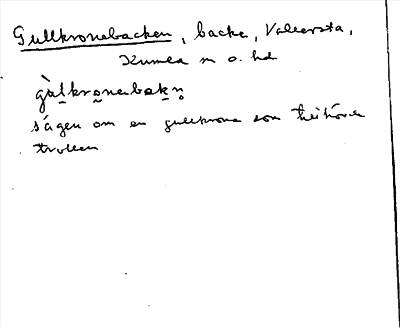 Gullkronebacken, backe, Vallersta,
Kumla sn o. hd
gàlkronebakn̥
sägen om en gullkrona som tillhörde
trollen